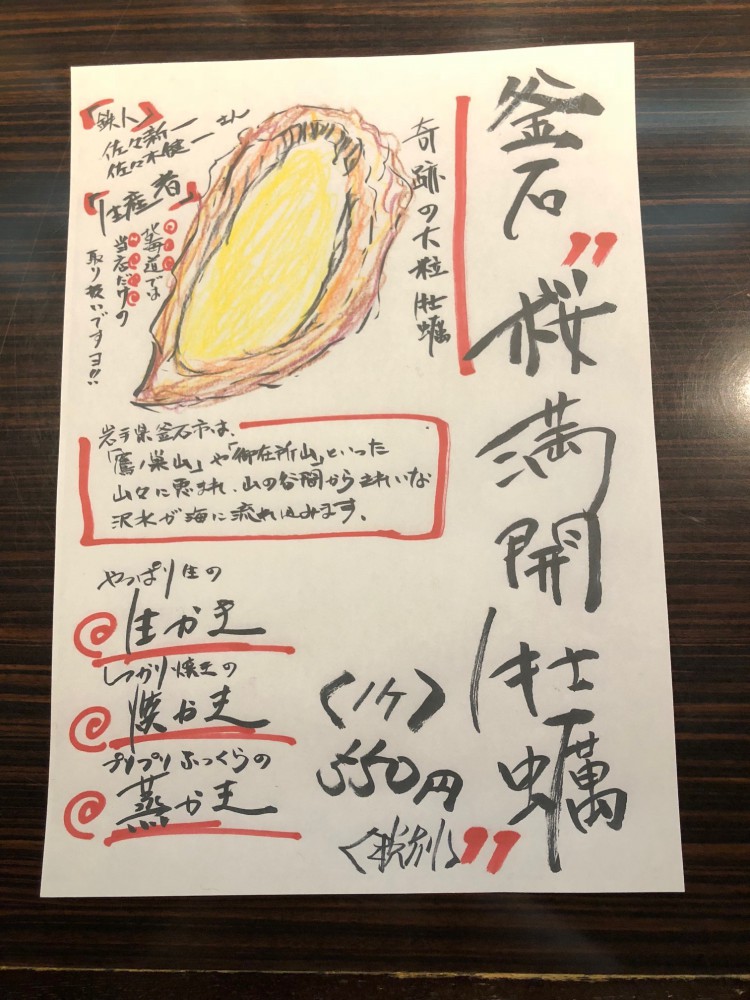 釜石"桜満開牡蠣"
奇跡の大粒牡蠣
「鉄人」
佐々新一
佐々木健一さん
「生産者」
北海道では
当店だけの
取り扱いですヨ!!
岩手県釜石市は、
「鷹ノ巣山」や「御在所山」といった
山々に恵まれ、山の谷間からきれいな
沢水が海に流れ込みます。
やっぱり生の
@生かき
しっかり焼きの
@焼かき
プリプリふっくらの
@蒸かき
〈1ケ〉
550円
〈税別〉